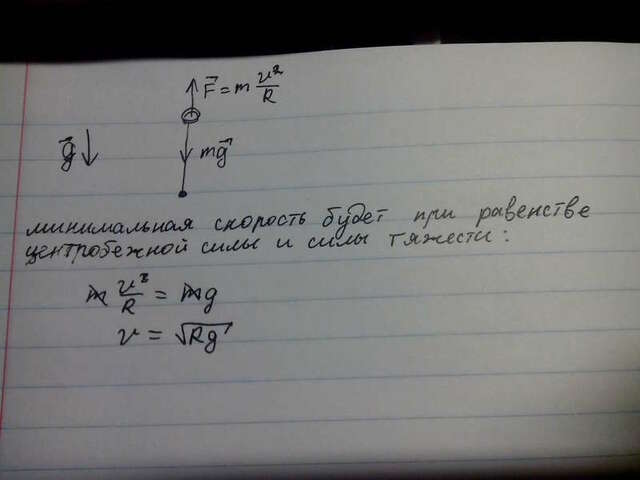 F⃗ = m v²/R
g⃗ ↓ mg⃗
минимальная скорость будет при равенстве
центробежной силы и силы тяжести:
m v²/R = mg
v = √Rg